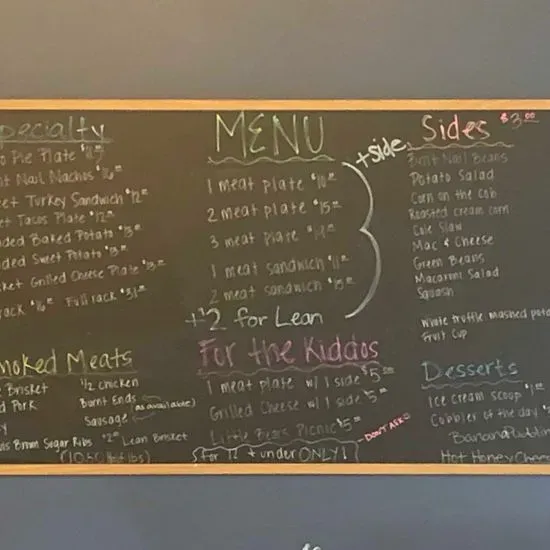 pecialty
o Pie Plate
Nail Nachos
et Turkey Sandwich $12
et Tacos Plate $12
ded Baked Potato
ded Sweet Potato
ket Grilled Cheese Plate
rack Full rack $31
MENU
1 meat plate
2 meat plate $15
3 meat plate
1 meat sandwich $11
2 meat sandwich
+$2 for Lean
+side
Sides $3.00
Bent Nail Beans
Potato Salad
Corn on the Cob
Roasted cream corn
Cole Slaw
Mac & Cheese
Green Beans
Macaroni Salad
Squash
White truffle mashed pota
Fruit Cup
moked Meats
Brisket
d Pork
y
uis Brown Sugar Ribs
1/2 chicken
Burnt Ends
Sausage
(as available)
Lean Brisket
For the Kiddos
1 meat plate w/ 1 side $5
Grilled Cheese w/ 1 side $5
Little Bears Picnic $5
DON'T ASK
for 12 + under ONLY!
Desserts
Ice cream scoop
Cobbler of the day
Banana Puddin
Hot Honey Chee